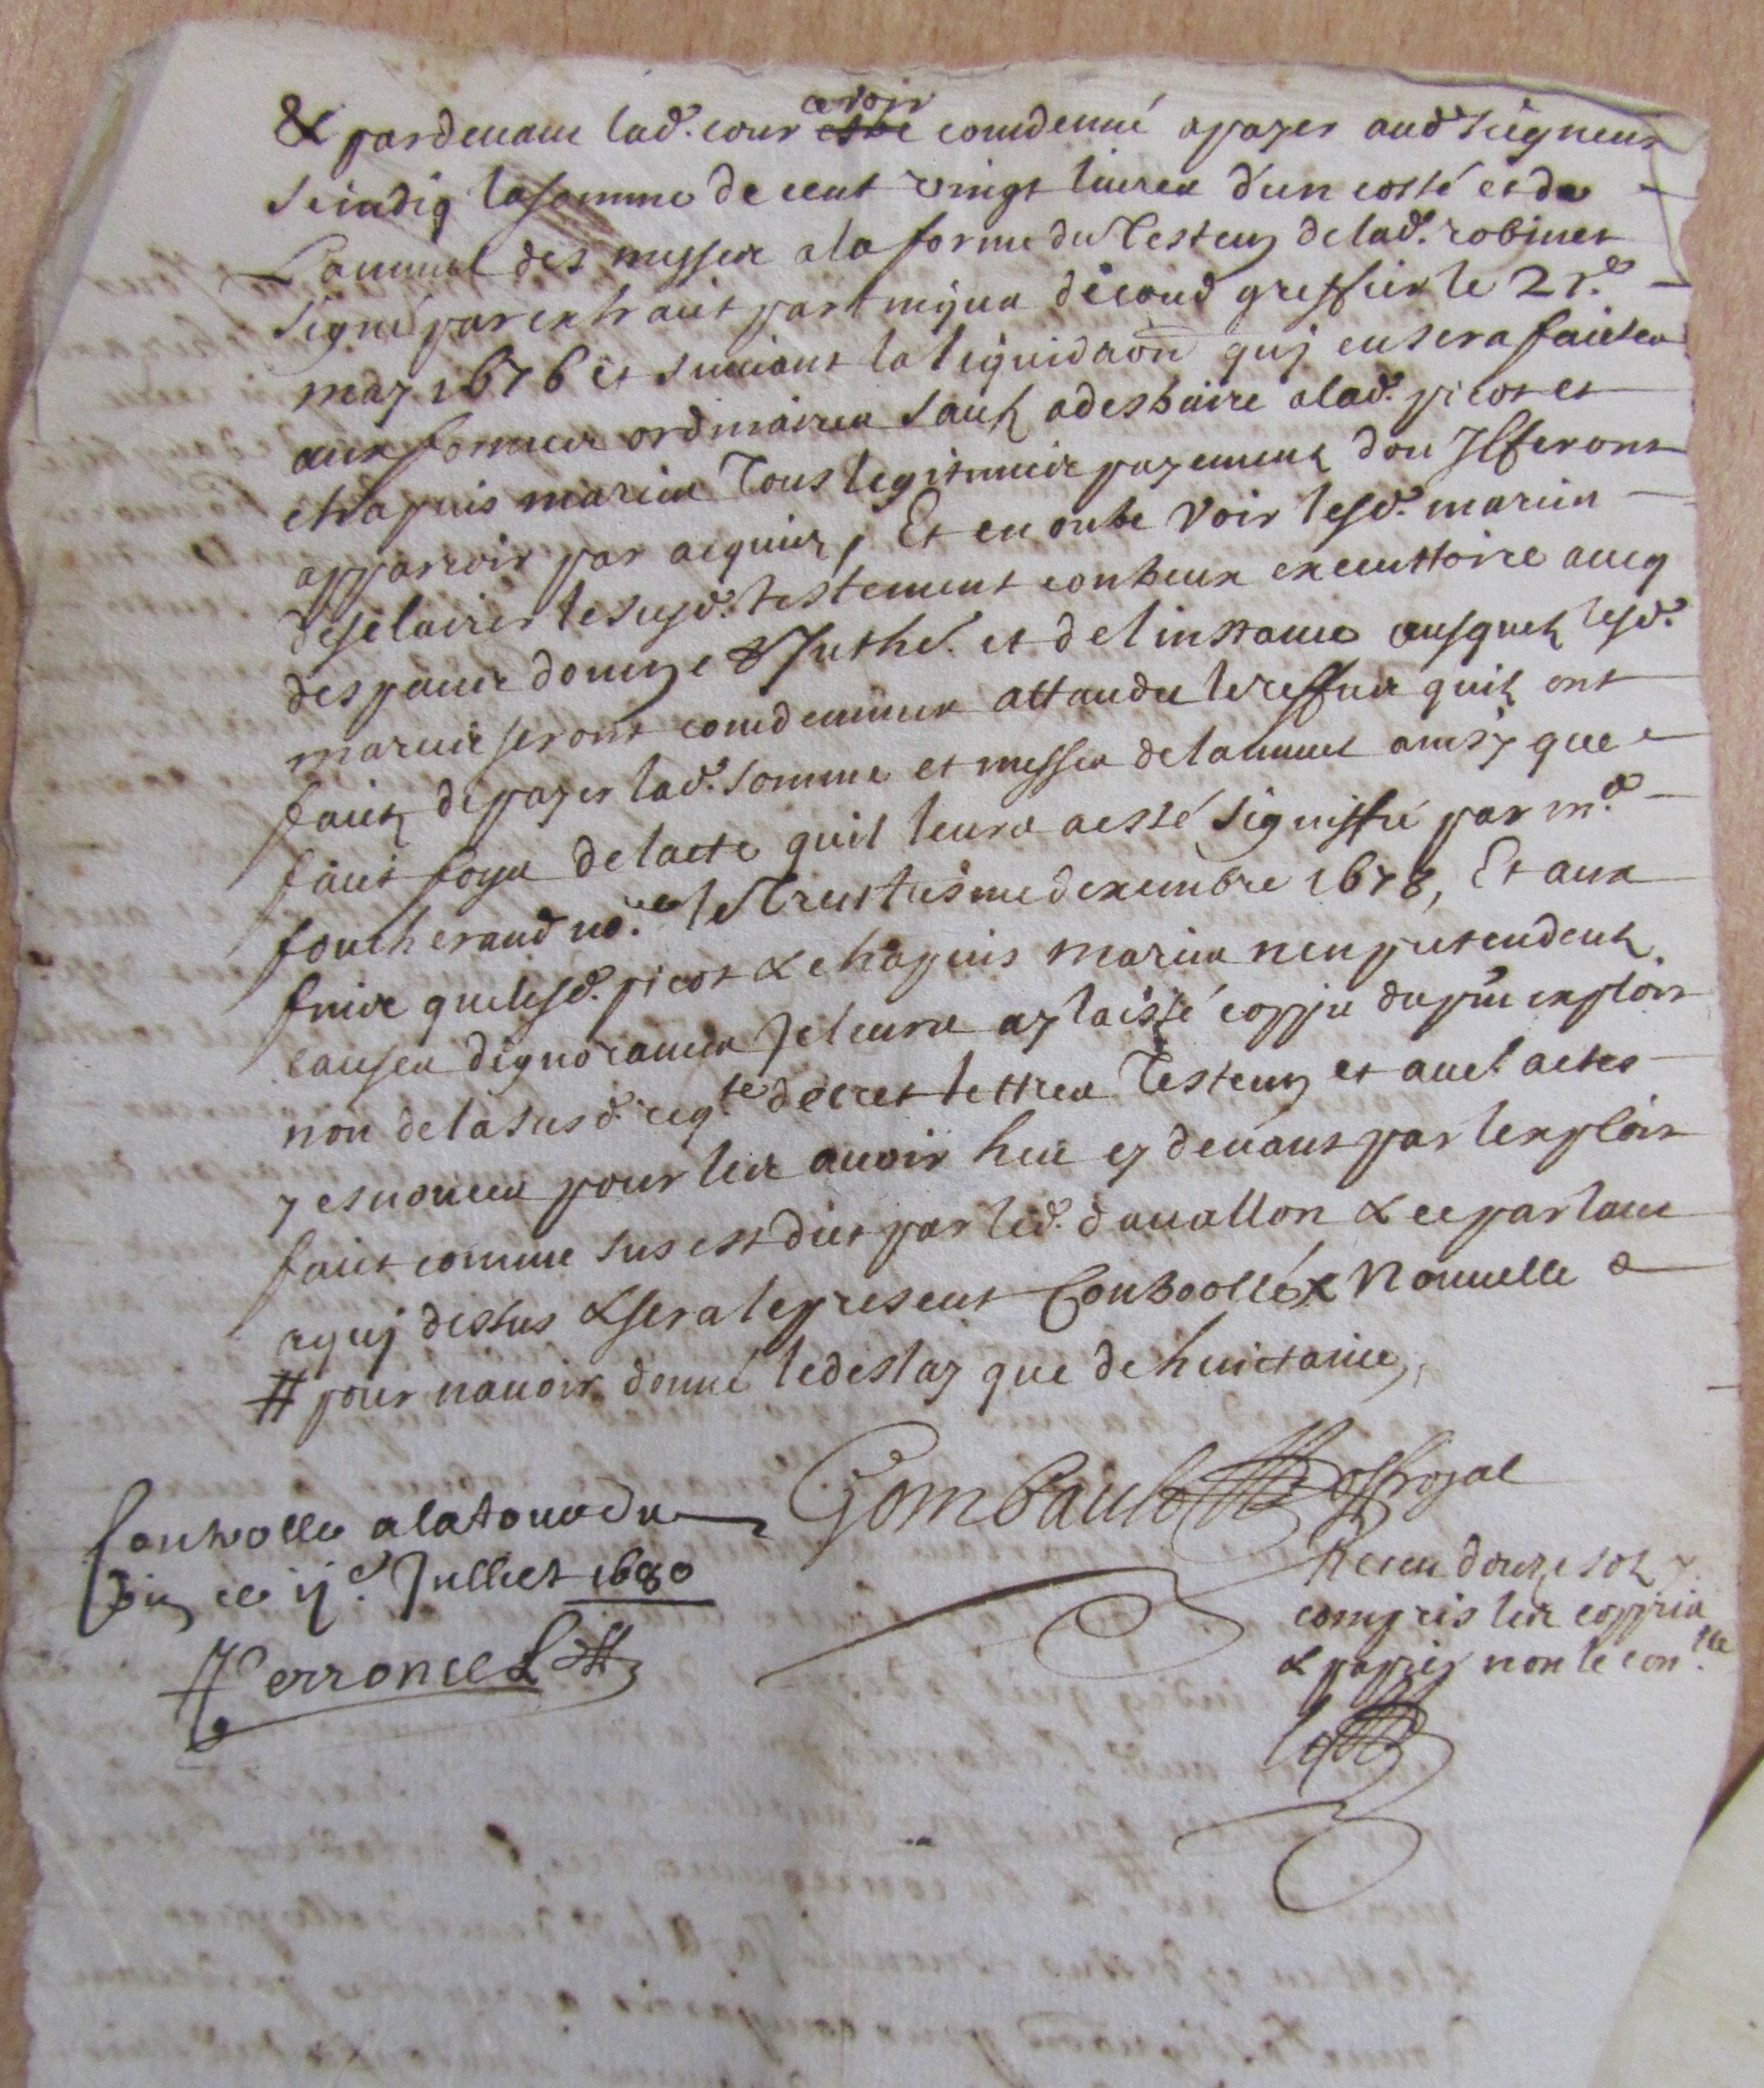 & pardevant lad. cour avoir estre comdemné a payer aud seigneur
scindiq la somme de cent vingt livres d'un costé et de
Lannuel des messes a la forme du Testem de lad. robinet
signé par extraict par decoud greffier le 21e
may 1676 et suivant la liquidaōn quj en sera faictes
aux formes ordinaires sauf a desduire a lad. picot et
chapuis mariés Tous legitimes payements dou Ilz feront
apparroir par acquits, Et en outre Voir lesd. mariés
desclairer le susd. testement contreux executtoire avecq
despans et de linstance ausquels lesd.
mariés seront comdemnés attandu le reffus quils ont
faict de payer lad. somme et messes de lannuel ainsy que
faict foy de lacte quil leurs a esté signiffié par me
foucherand nore le Trentiesme dexembre 1678, Et aux
fins que lesd. picot & chapuis mariés nen pretendent
causes dignorances Je leurs ay laissé coppie du pñt exploit
non de la susd. reqte decret lettres Testem et aultres actes
y esnoncés pour les avoir heu cy devant par lexploit
faict comme sus est dict par led. davallon & ce parlant
a quj dessus & sera le present Controollé & Nouuelle
# pour nauoir donné le deslay que de huictaine,
Gombault offroyal
Controlle a la tour du
pin ce ije Julliet 1680
Perroncel
Receu douze sols y
compris les coppies
& papier non le conlle